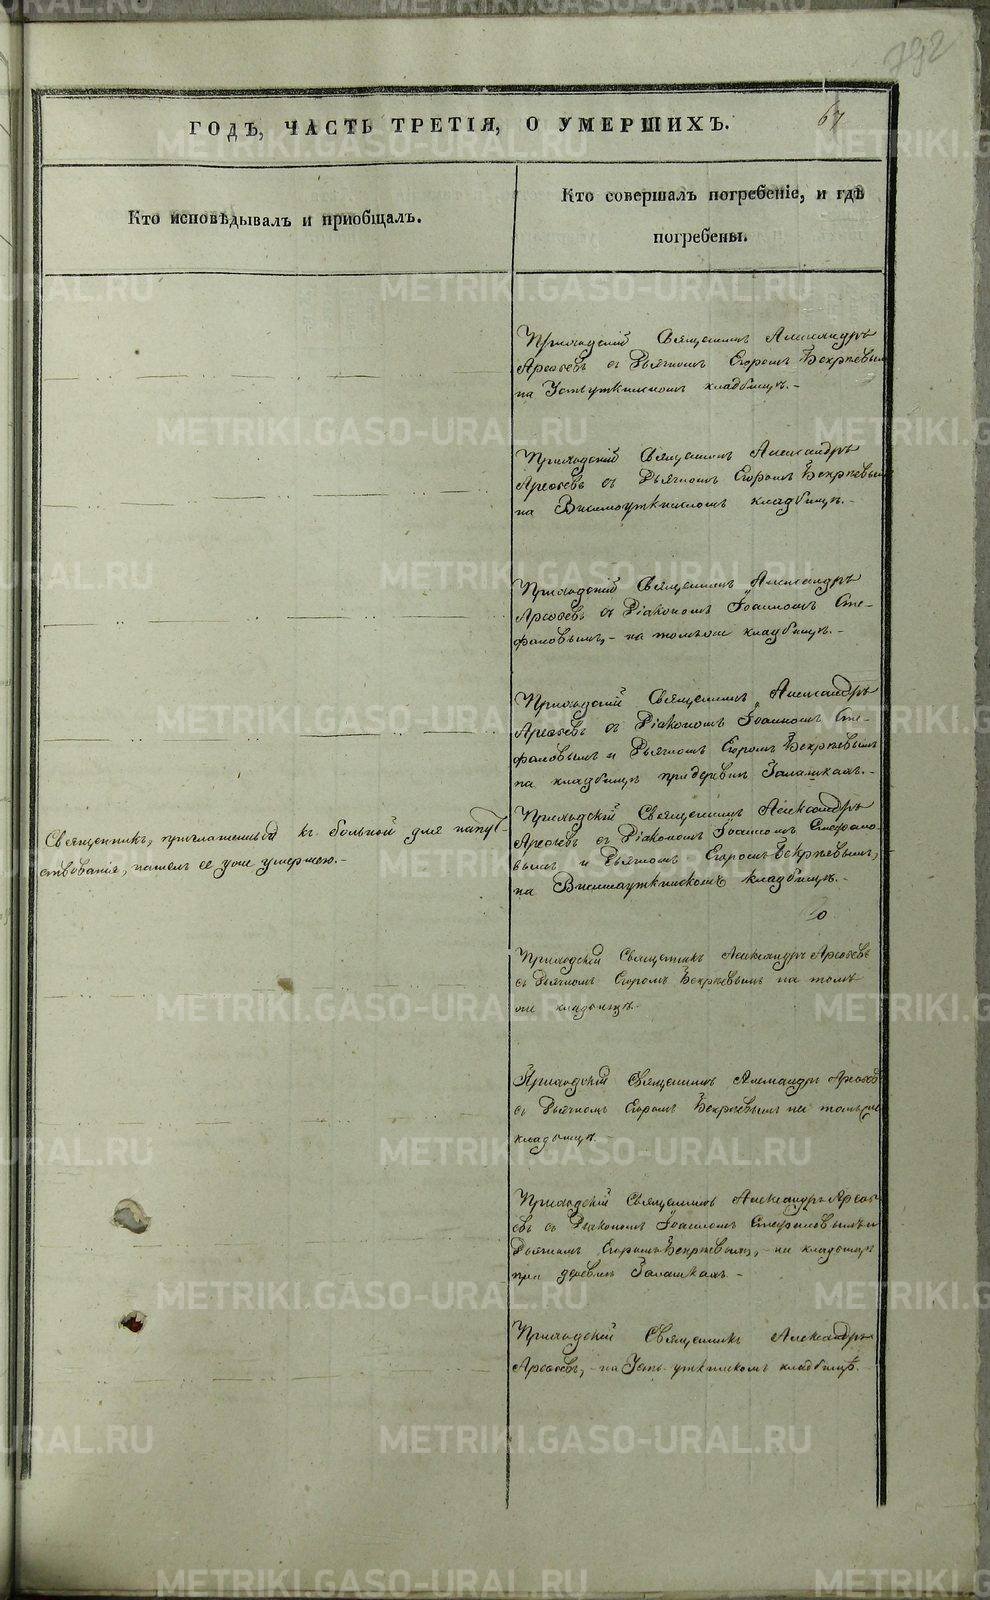 792
67
ГОДЪ, ЧАСТЬ ТРЕТІЯ, О УМЕРШИХЪ.
Кто исповѣдывалъ и пріобщалъ.
Кто совершалъ погребеніе, и гдѣ
погребены.
Приходскій Священникъ Александръ
съ Дьячкомъ Егоромъ
на Устьуткинскомъ кладбищѣ.-
Приходскій Священникъ Александръ
съ Дьячкомъ Егоромъ
на Висимоуткинскомъ кладбищѣ.-
Приходскій Священникъ Александръ
съ Діакономъ Іоанномъ Сте-
фановымъ,- на томъ же кладбищѣ.-
Приходскій Священникъ Александръ
съ Діакономъ Іоанномъ Сте-
фановымъ и Дьячкомъ Егоромъ
на кладбищѣ при деревнѣ Галашкахъ.-
Священникъ, приглашенный къ больной для напут-
ствованія, нашелъ ее уже умершею.-
Приходскій Священникъ Александръ
съ Діакономъ Іоанномъ Стефано-
вымъ и Дьячкомъ Егоромъ
на Висимоуткинскомъ кладбищѣ.-
Приходскій Священникъ Александръ
съ Дьячкомъ Егоромъ на томъ
же кладбищѣ.-
Приходскій Священникъ Александръ
съ Дьячкомъ Егоромъ на томъ же
кладбищѣ.-
Приходскій Священникъ Александръ
съ Діакономъ Іоанномъ Стефановымъ и
Дьячкомъ Егоромъ на кладбищѣ
при деревнѣ Галашкахъ.-
Приходскій Священникъ Александръ
на Усть-уткинскомъ кладбищѣ.-
METRIKI.GASO-URAL.RU